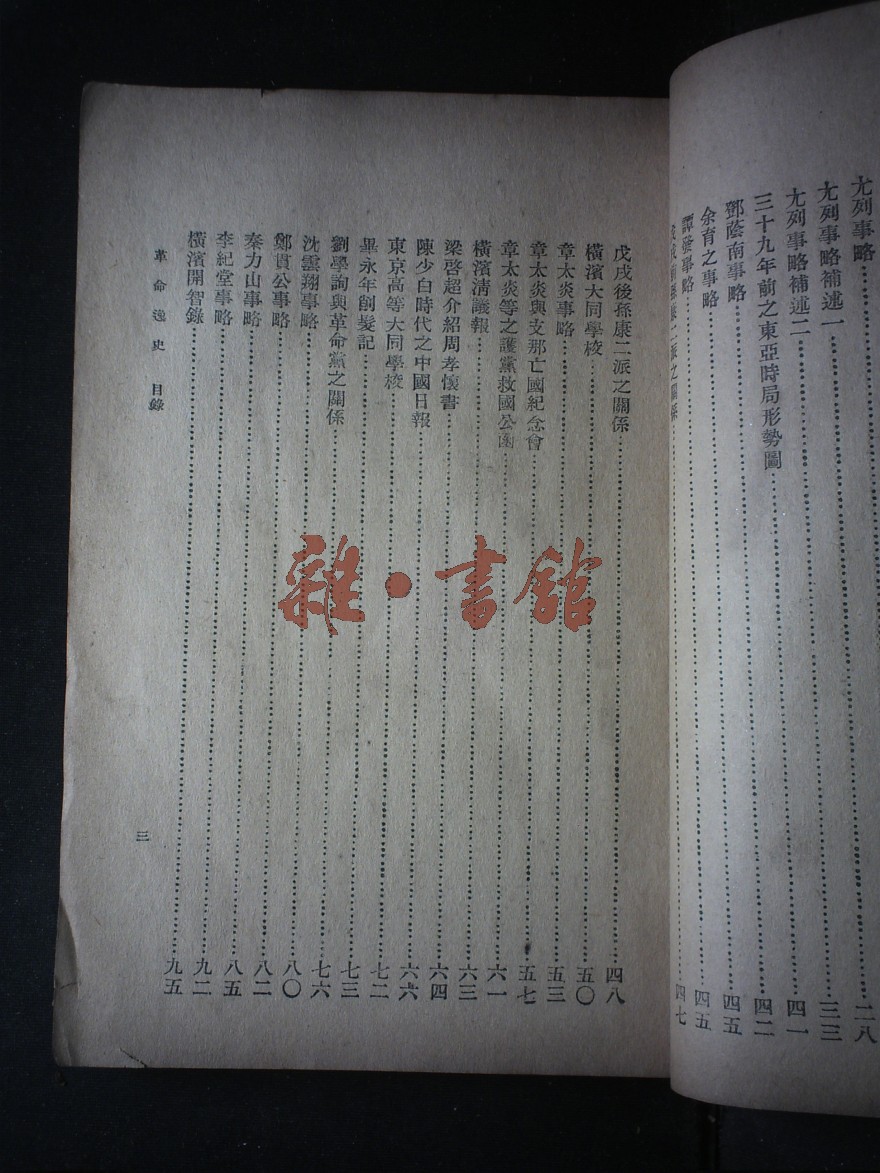 尢列事略……二八
尢列事略補述一……三三
尢列事略補述二……四一
三十九年前之東亞時局形勢圖……四二
鄧蔭南事略……四五
余育之事略……四五
譚發事略……四七
戊戌前孫康二派之關係……
戊戌後孫康二派之關係……四八
橫濱大同學校……五〇
章太炎事略……五三
章太炎與支那亡國紀念會……五七
章太炎等之護黨救國公函……六一
橫濱清議報……六三
梁啓超介紹周孝懷書……六四
陳少白時代之中國日報……六六
東京高等大同學校……七二
畢永年削髮記……七三
劉學詢與革命黨之關係……七六
沈雲翔事略……八〇
鄭貫公事略……八二
秦力山事略……八五
李紀堂事略……九二
橫濱開智錄……九五
革命逸史 目錄
三
雜·書館